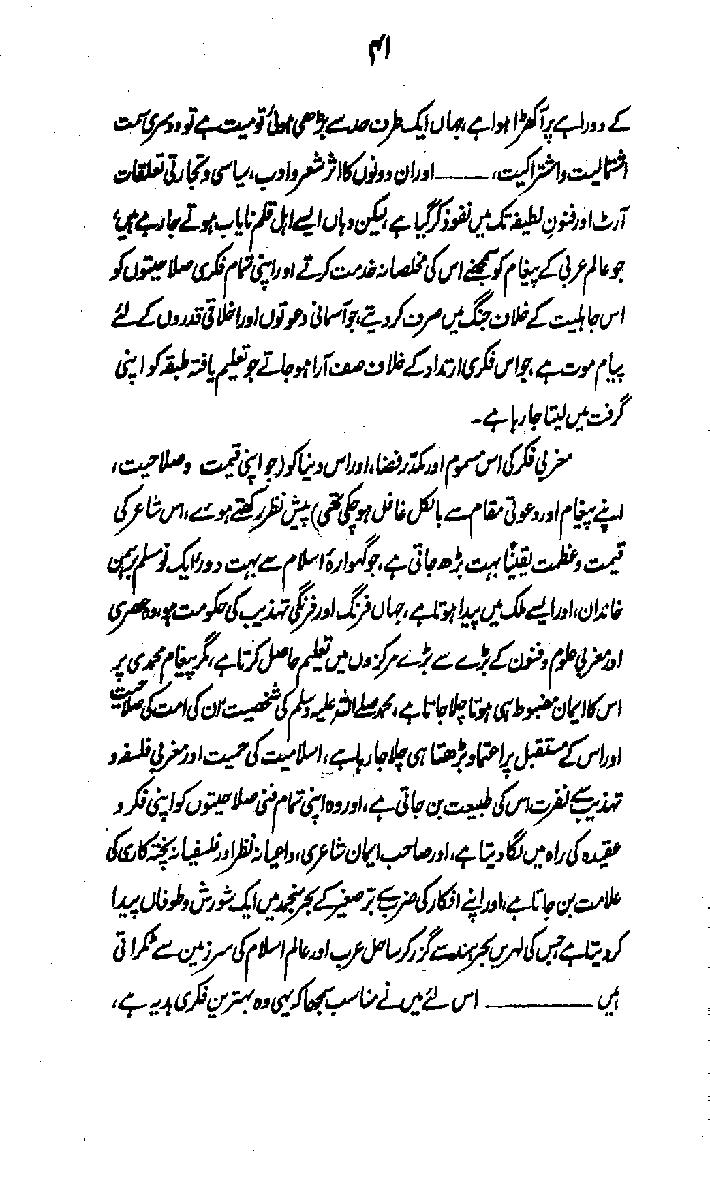 ۴۱
کے دوراہے پر آکھڑا ہوا ہے، جہاں ایک طرف حد سے بڑھی ہوئی قومیت ہے تو دوسری سمت
اشتمالیت و اشتراکیت، ——— اور ان دونوں کا اثر شعر و ادب، سیاسی و تجارتی تعلقات
آرٹ اور فنون لطیفہ تک میں نفوذ کر گیا ہے، لیکن وہاں ایسے اہل قلم نایاب ہوتے جا رہے ہیں
جو عالم عربی کے پیغام کو سمجھنے اس کی مخلصانہ خدمت کرتے اور اپنی تمام فکری صلاحیتوں کو
اس جاہلیت کے خلاف جنگ میں صرف کر دیتے، جو آسمانی دعوتوں اور اخلاقی قدروں کے لئے
پیام موت ہے، جو اس فکری ارتداد کے خلاف صف آرا ہو جاتے جو تعلیم یافتہ طبقہ کو اپنی
گرفت میں لیتا جا رہا ہے۔
مغربی فکر کی اس مسموم اور مکدّر فضا، اور اس دنیا کو (جو اپنی قیمت و صلاحیت،
اپنے پیغام اور دعوتی مقام سے بالکل غافل ہو چکی تھی) پیش نظر رکھتے ہوئے، اس شاعر کی
قیمت و عظمت یقیناً بہت بڑھ جاتی ہے، جو گہوارۂ اسلام سے بہت دور ایک نو مسلم برہمن
خاندان، اور ایسے ملک میں پیدا ہوتا ہے، جہاں فرنگ اور فرنگی تہذیب کی حکومت ہو، وہ عصری
اور مغربی علوم و فنون کے بڑے سے بڑے مرکزوں میں تعلیم حاصل کرتا ہے، مگر پیغام محمدی پر
اس کا ایمان مضبوط ہی ہوتا چلا جاتا ہے، محمد صلے اللہ علیہ وسلم کی شخصیت ان کی امت کی صلاحیت
اور اس کے مستقبل پر اعتماد بڑھتا ہی چلا جا رہا ہے، اسلامیت کی حمیت اور مغربی فلسفہ و
تہذیب سے نفرت اس کی طبیعت بن جاتی ہے، اور وہ اپنی تمام فنی صلاحیتوں کو اپنی فکر و
عقیدہ کی راہ میں لگا دیتا ہے، اور صاحب ایمان شاعری، داعیانہ نظر اور فلسفیانہ پختہ کاری کی
علامت بن جاتا ہے، اور اپنے افکار کی ضرب سے برصغیر کے بحر منجمد میں ایک شورش و طوفاں پیدا
کر دیتا ہے جس کی لہریں بحر ہند سے گزر کر ساحل عرب اور عالم اسلام کی سرزمین سے ٹکراتی
ہیں ——— اس لئے میں نے مناسب سمجھا کہ یہی وہ بہترین فکری ہدیہ ہے،